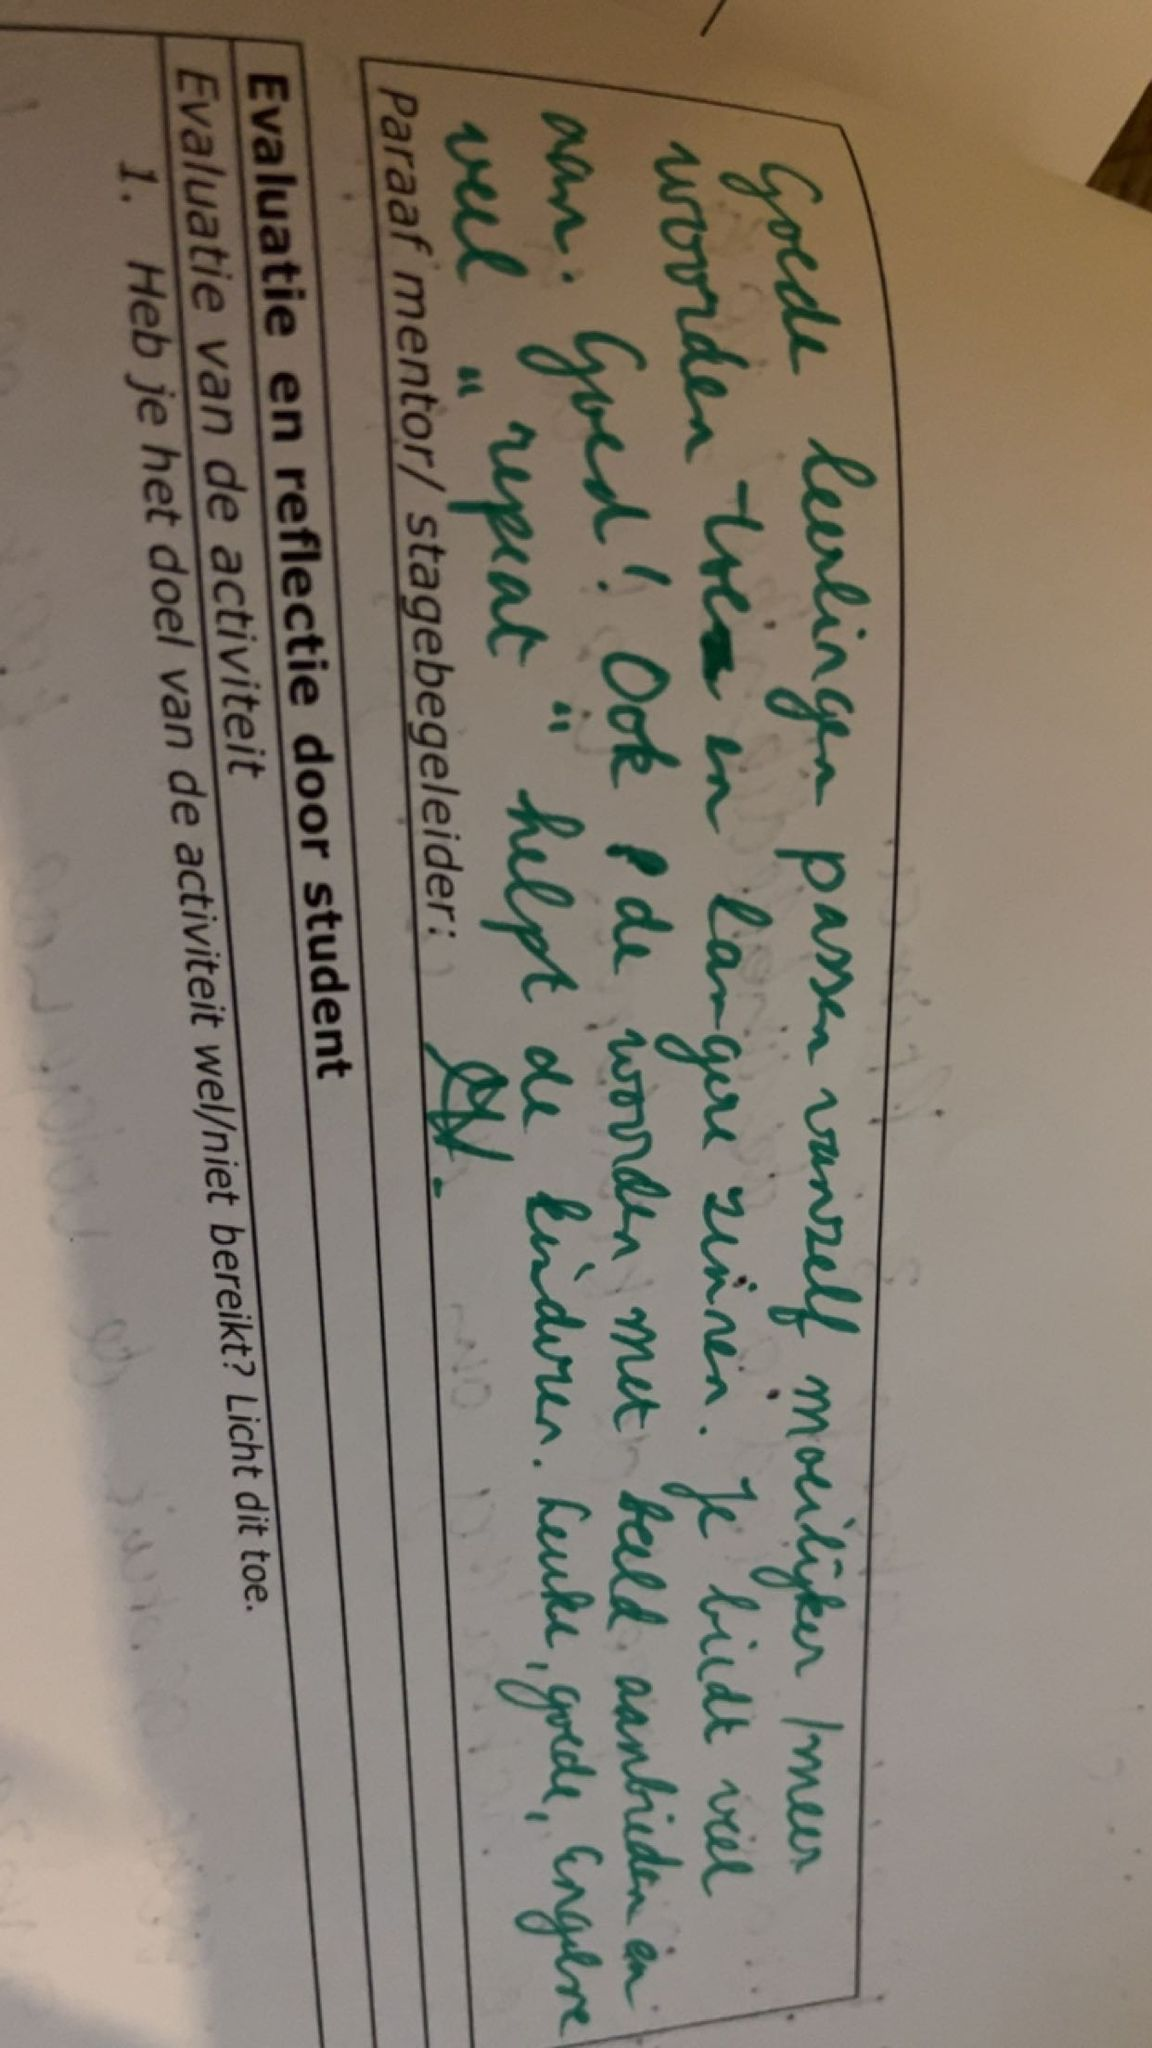 Goede leerlingen passen vanzelf moeilijker / meer
woorden toe en langere zinnen. Je biedt veel
aan. Goed! Ook de woorden met beeld aanbieden en
veel "repeat" helpt de kinderen. Leuke, goede, Engelse
Paraaf mentor/ stagebegeleider:
Evaluatie en reflectie door student
Evaluatie van de activiteit
1. Heb je het doel van de activiteit wel/niet bereikt? Licht dit toe.